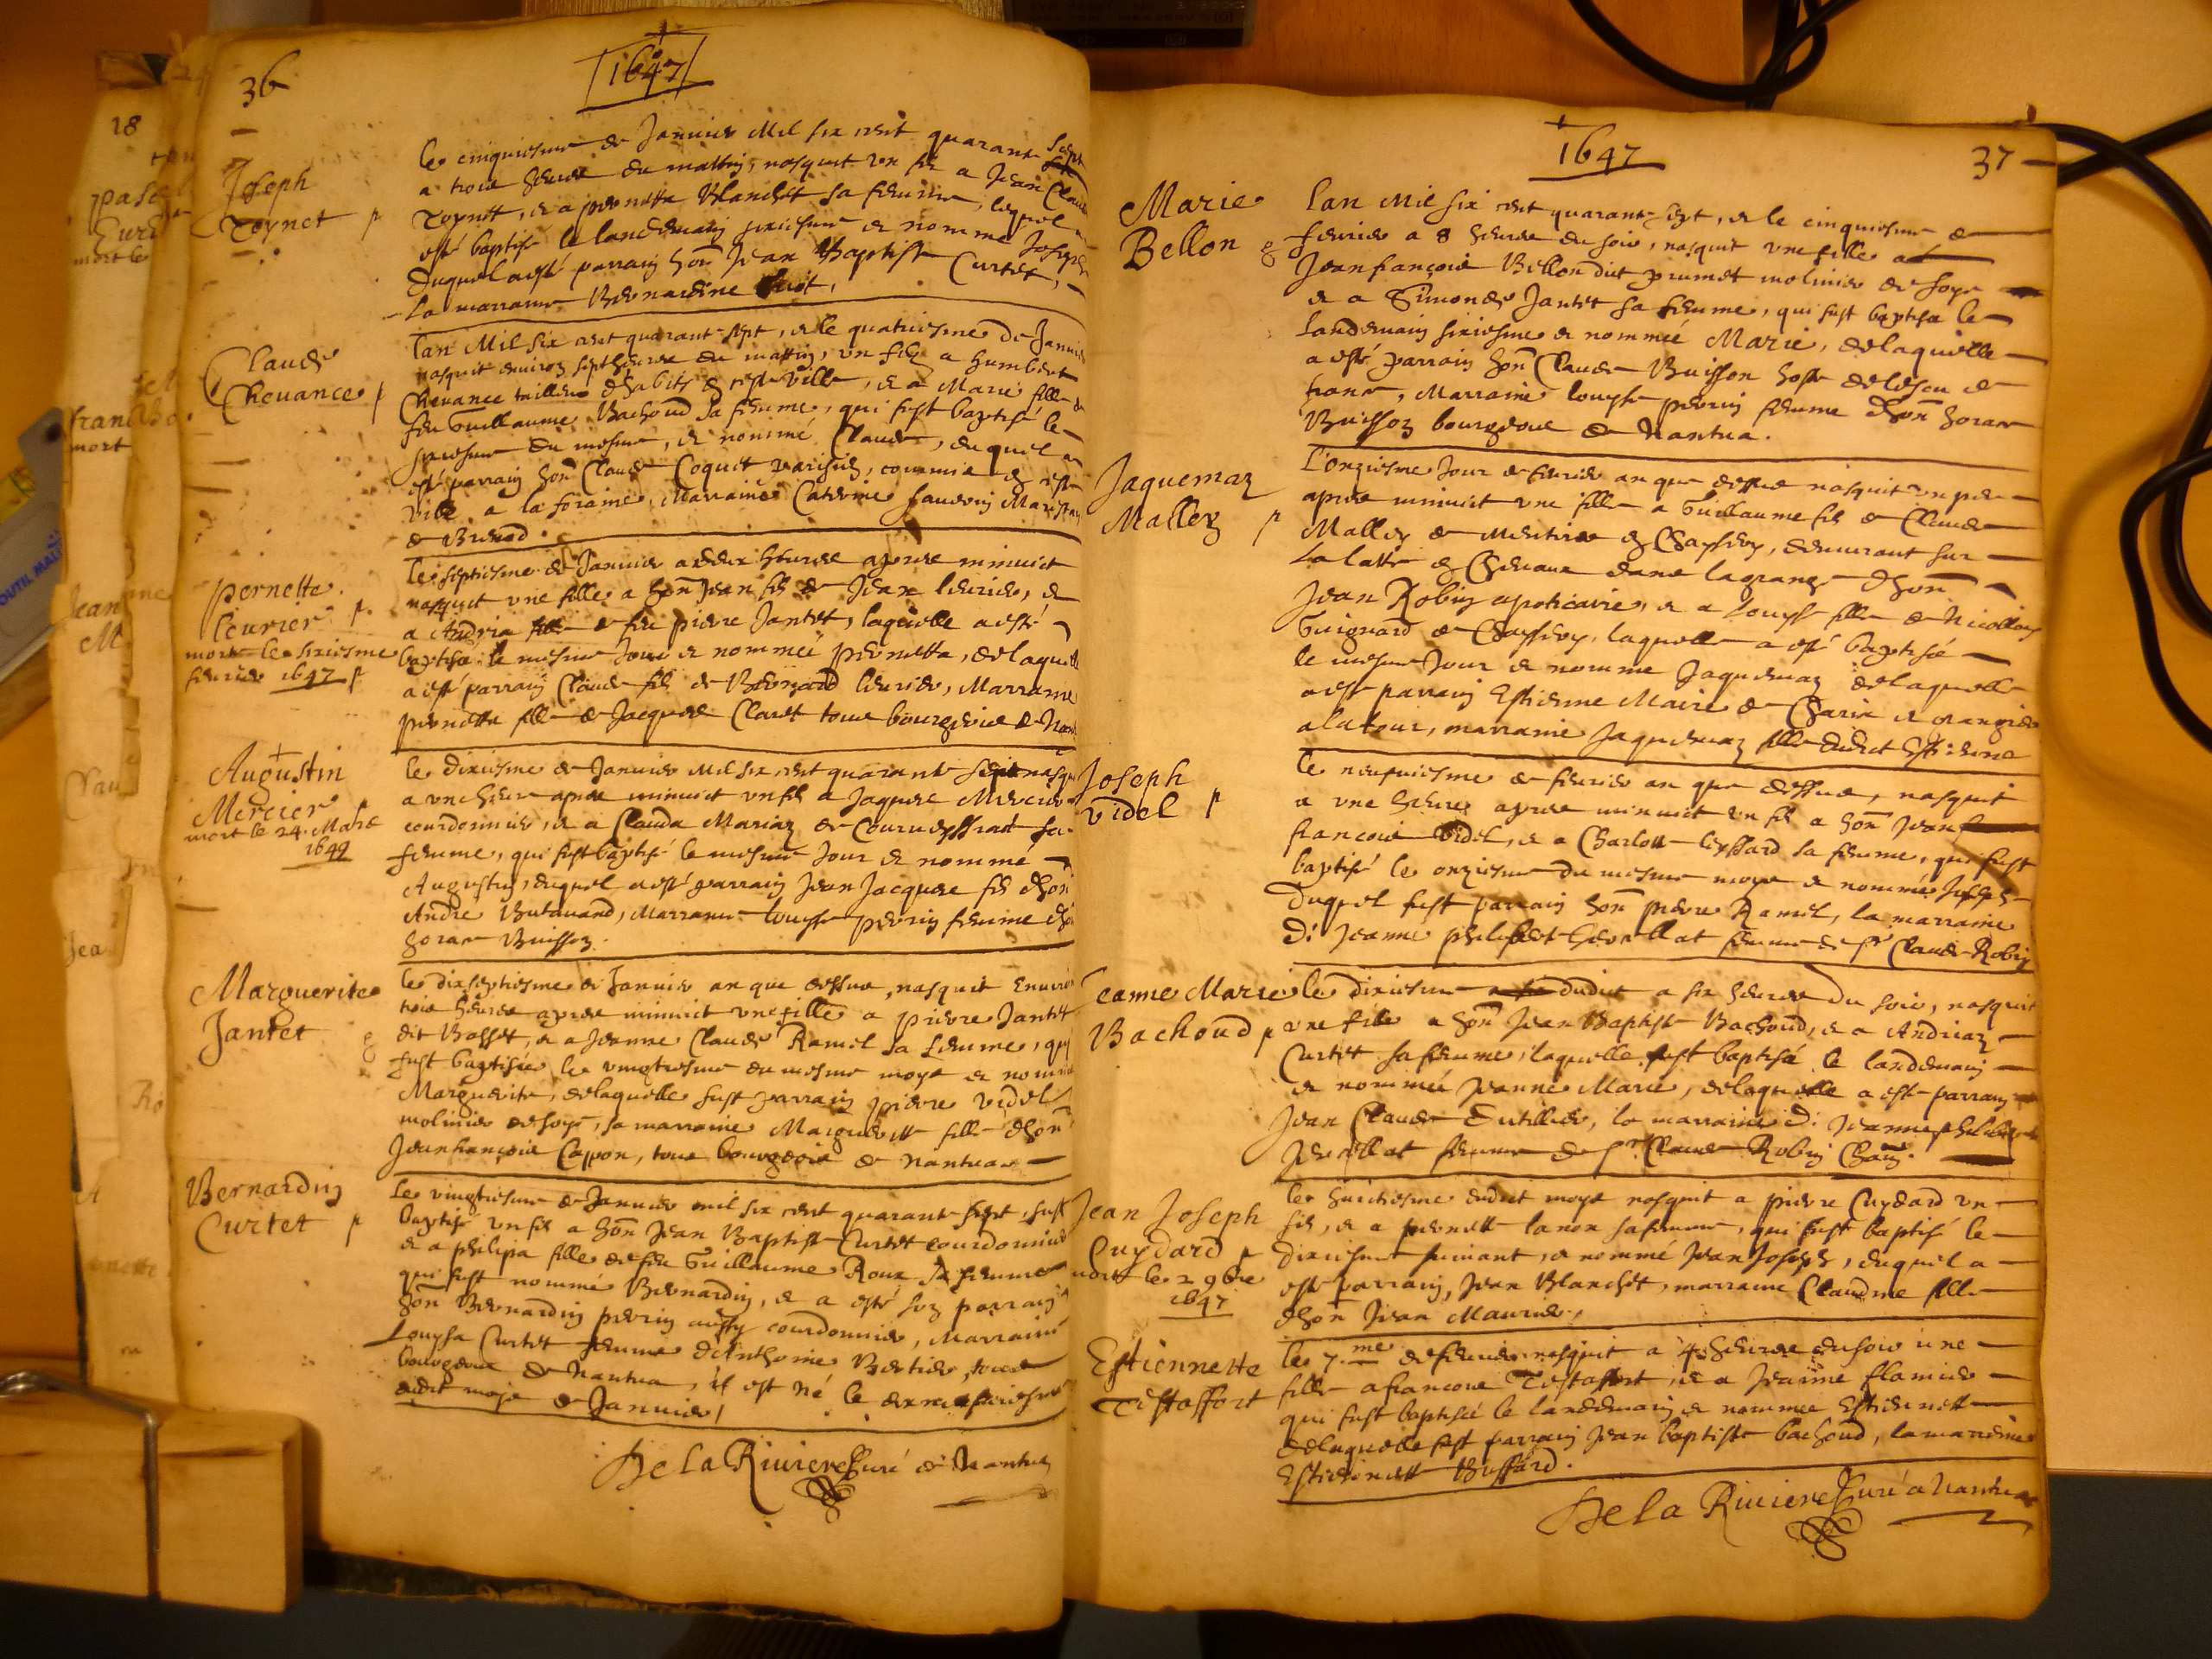 36
1647
Joseph
Toynet
le cinquiesme de Januier Mil six cent quarant sept
a trois heures du mattin, nasquit un filz a Jean Claude
Toynet, et a pernette Blanchet sa femme, lequel a
esté baptisé le landemain sixiesme et nommé Joseph
duquel a esté parrain hon Jean Baptiste Curtet,
La marraine Bernardine
Claude
Cheuance
lan Mil six cent quarant-sept, et le quatriesme de Januier
nasquit enuiron sept heures du mattin, un filz a humbert
Cheuance tailleur dhabits de ceste ville, et a Marie fille de
feu Guillaume Bachoud sa femme, qui fust baptisé le
sixiesme du mesme, et nommé Claude, duquel a
esté parrain hon Claude Coquet parisien, commis en ceste
ville a la foraine, Marraine Caterine
de Brenod.
pernette
leurier
mort le sixiesme
feurier 1647
le septiesme de Januier a deux heures apres minuict
nasquit une fille a hon Jean filz de Jean leurier, et
a Andria fille de feu pierre Jantet, laquelle a esté
baptisé le mesme Jour et nommeé pernette, delaquelle
a esté parrain Claude filz de Bernard leurier, Marraine
pernette fille de Jacques Claret tous bourgeois de
Augustin
Mercier
mort le 24. Mars
1649
le dixiesme de Januier Mil six cent quarante sept nasquit
a une heure apres minuict un filz a Jaques Mercier
courdonnier, et a Clauda Mariaz de sa
femme, qui fust baptisé le mesme Jour et nommé
Augustin, duquel a esté parrain Jean Jacques filz dhon
Andre Butauand, Marraine louyse perrin femme dhon
horace Buisson.
Marguerite
Jantet
le dixseptiesme de Januier an que dessus, nasquit Enuiron
trois heures apres minuict une fille a pierre Jantet
dit Bosset, et a Jeanne Claude Ramel sa femme, qui
fust baptisée le vingtiesme du mesme moys et nommée
Marguerite, delaquelle fust parrain pierre Videl
molinier de soye, sa marraine Marguerite fille dhon
Jeanfrançois Cappon, tous bourgeois de Nantua
Bernardin
Curtet
le vingtiesme de Januier mil six cent quarant sept, fust
baptisé un filz a hon Jean Baptiste Curtet courdonnier
et a philipia fille de feu Guillaume Roux sa femme
qui fust nommé Bernardin, et a esté son parrain
hon Bernardin perrin aussy courdonnier, Marraine
Louysa Curtet femme dAnthoine Bertier, tous
bourgeois de Nantua, il est né le
dudit moys de Januier
De la Riuiere Curé de Nantua
1647
37
Marie
Bellon
lan Mil six cent quarant-sept, et le cinquiesme de
feurier a 8 heures du soir, nasquit une fille a
Jeanfrançois Bellon dict prumet molinier de soye
et a Simonde Jantet sa femme, qui fust baptisa le
landemain sixiesme et nommeé Marie, delaquelle
a esté parrain hon Claude Buisson hoste de lescu de
france, Marraine louyse perrin femme dhon horace
Buisson bourgeois de Nantua.
Jaquemaz
Mallez
L'onziesme Jour de feurier an que dessus nasquit un peu
apres minuict une fille a Guillaume filz de Claude
Mallez de en Chayssery, demeurant sur
La latte et dans la grange dhon
Jean Robin apoticaire, et a Louyse fille de Nicollas
Guignard de Chayssery, laquelle a esté baptisé
le mesme Jour et nommé Jaquemaz delaquelle
a esté parrain Estienne Maire de Charix et grangier
a la tour, marraine Jaquemaz fille dudict Estienne
Joseph
Videl
le neufuiesme de feurier an que dessus, nasquit
a une heure apres minuict un filz a hon Jean
francois Videl, et a Charlotte sa femme, qui fust
baptisé le onziesme du mesme moys et nommé Joseph
Duquel fust parrain hon pierre Ramel, la marraine
D. Jeanne philiberte femme de Sr Claude Robin
Jeanne Marie
Bachoud
le dixiesme dudict a six heures du soir, nasquit
une fille a hon Jean Baptiste Bachoud, et a Andriaz
Curtet sa femme, laquelle fust baptisé le landemain
et nommeé Jeanne Marie, delaquelle a esté parrain
Jean Claude Dutillier, la marraine D. Jeanne philiberte
femme de Sr Claude Robin
Jean Joseph
Cuydard
mort le 29bre
1647
le huictiesme dudict moys nasquit a pierre Cuydard un
filz, et a pernette sa femme, qui fust baptisé le
dixiesme suiuant, et nommé Jean Joseph, duquel a
esté parrain, Jean Blanchet, marraine Claudine fille
dhon Jean Maurier,
Estiennette
Testaffort
le 7.me de feurier nasquit a 4 heures du soir une
fille a francois Testaffort, et a Jeanne flamier
qui fust baptisée le landemain et nommee Estiennette
delaquelle fust parrain Jean baptiste bachoud, la marraine
Estiennette Buffard.
De la Riuiere Curé a Nantua